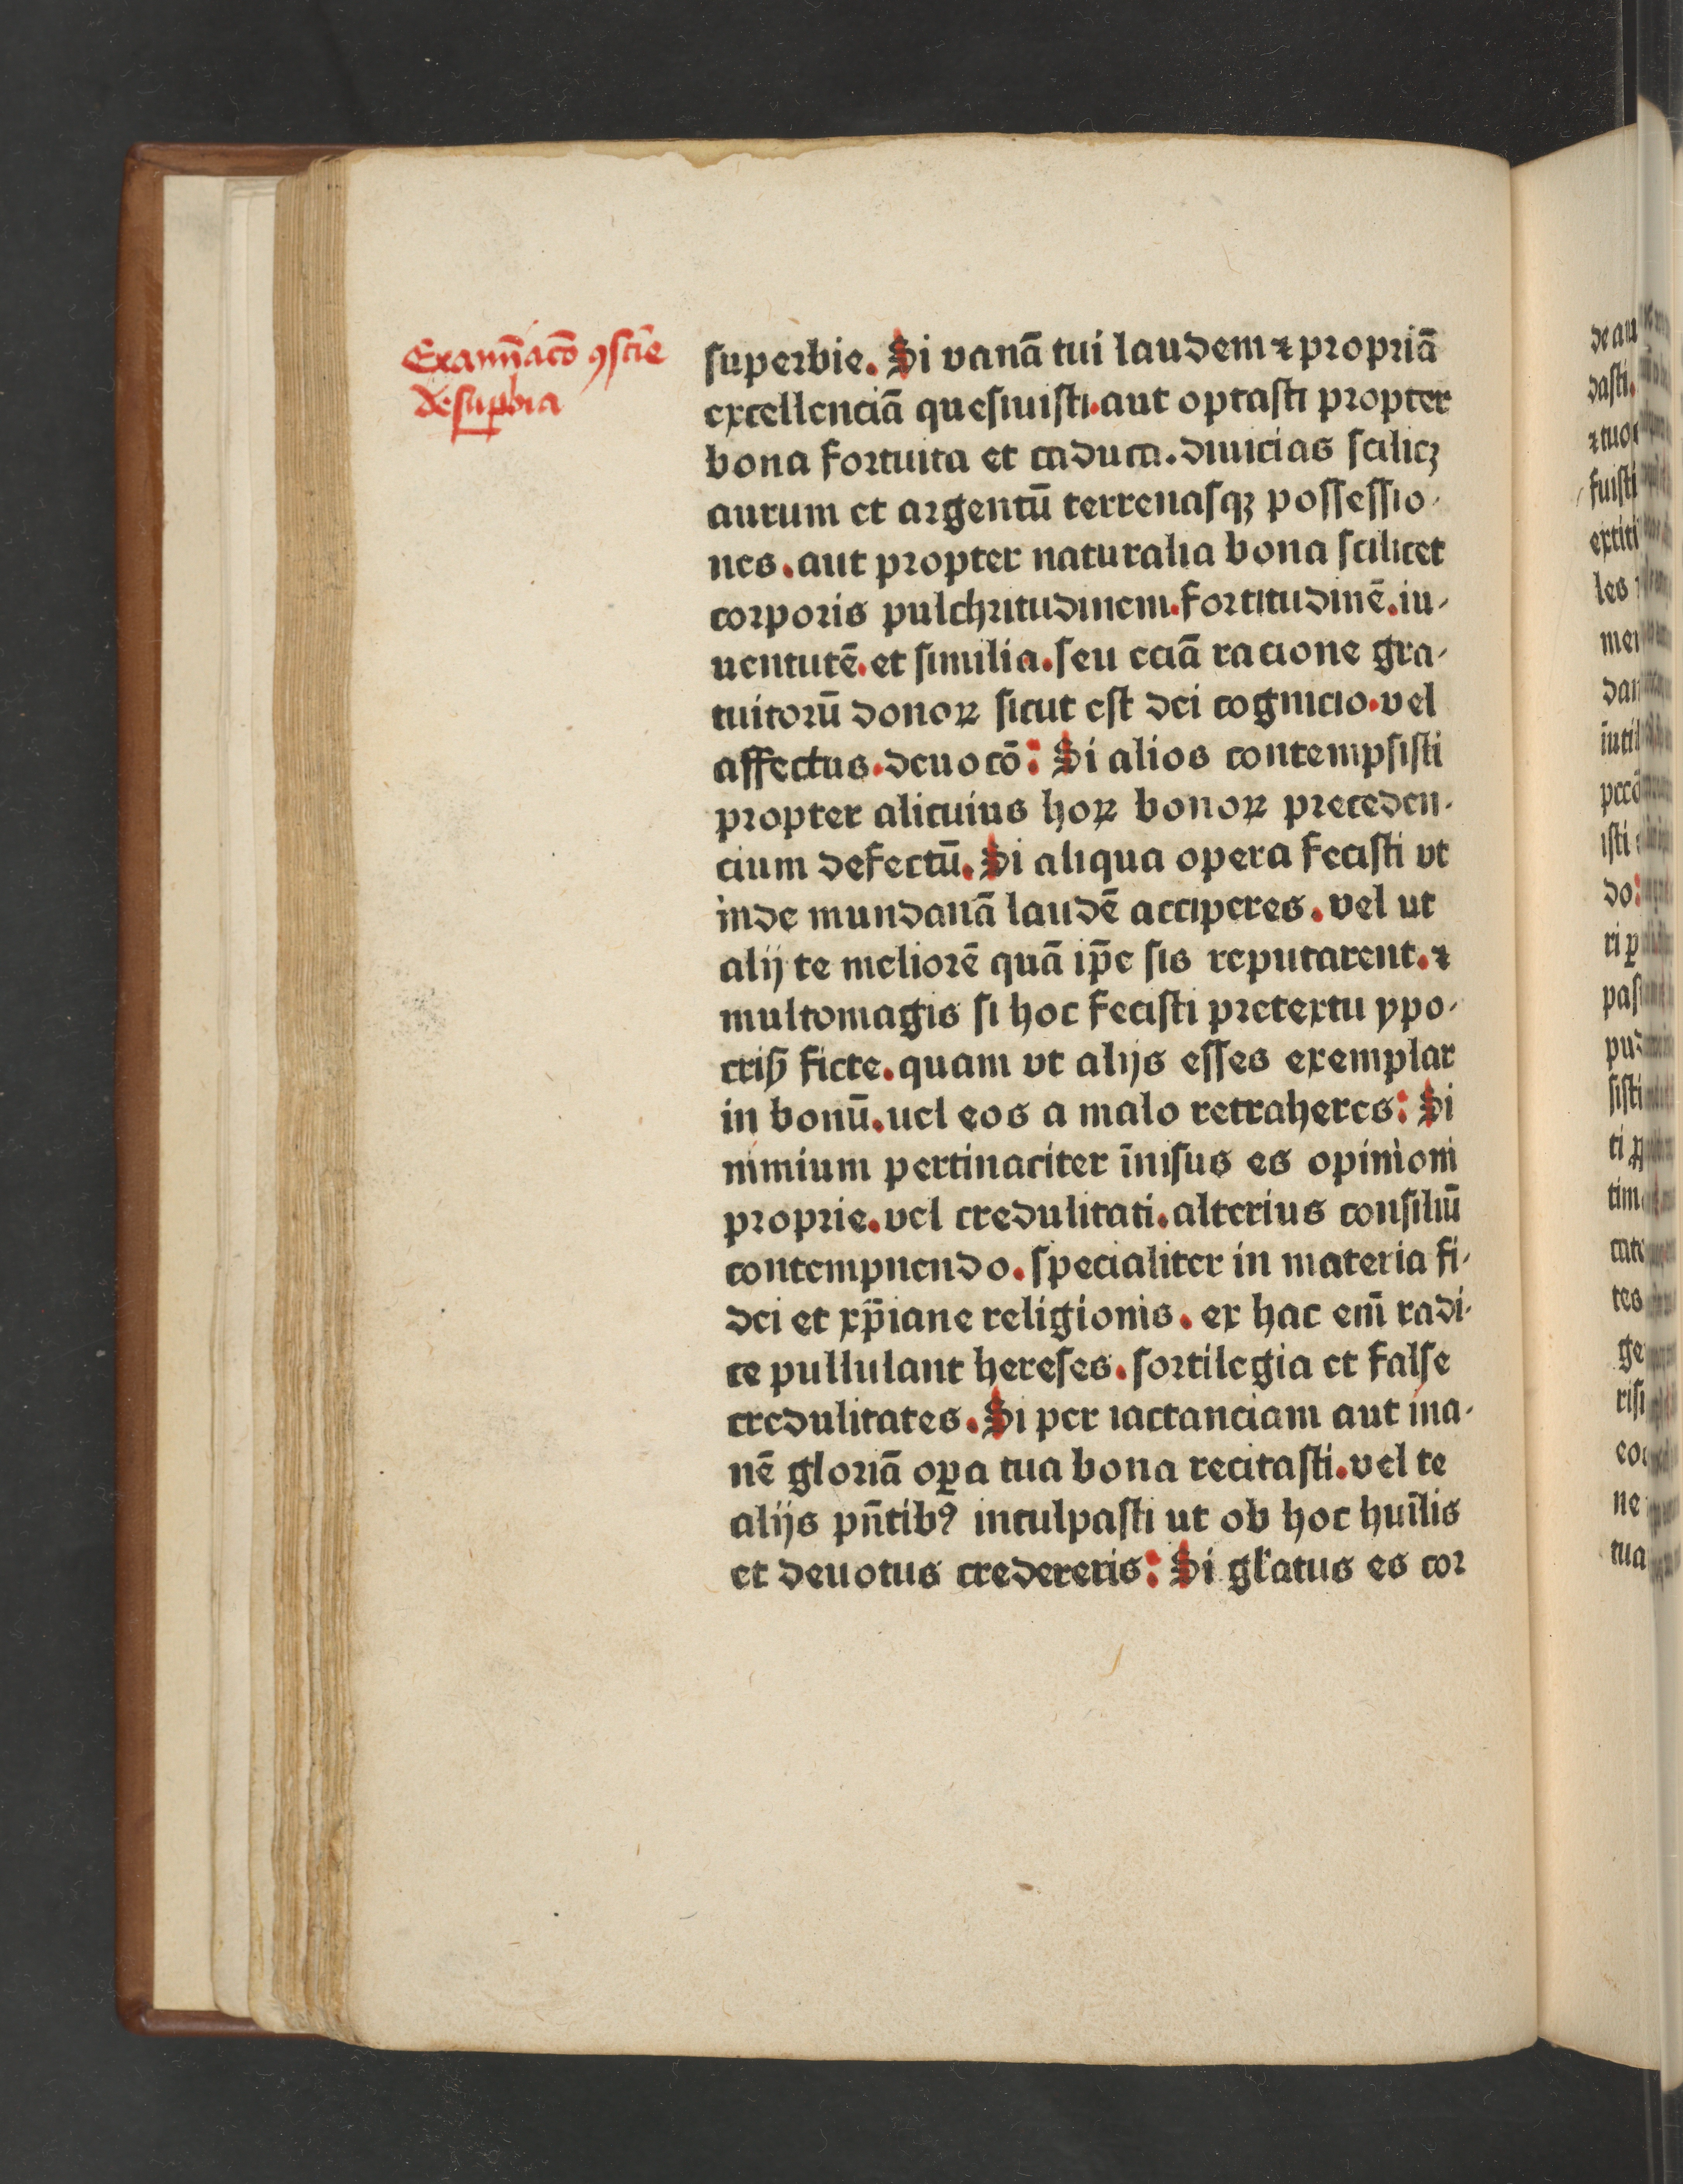 Examīacō ꝯscīe
de supbia
superbie. Si vanā tui laudem ⁊ propriā
excellenciā quesiuisti. aut optasti propter
bona fortuita et caduca. diuicias scilicꝫ
aurum et argentū terrenasqꝫ possessio-
nes. aut propter naturalia bona scilicet
corporis pulchritudinem. fortitudinē. iu-
uentutē. et similia. seu eciā racione gra-
tuitorū donoꝝ sicut est dei cognicio. vel
affectus. deuocō: Si alios contempsisti
propter alicuius hoꝝ bonoꝝ preceden-
cium defectū. Si aliqua opera fecisti vt
inde mundanā laudē acciperes. vel ut
alij te meliorē quā ip̄e sis reputarent. ⁊
multomagis si hoc fecisti pretextu ypo-
crisꝭ ficte. quam vt alijs esses exemplar
in bonū. uel eos a malo retraheres: Si
nimium pertinaciter īnisus es opinioni
proprie. vel credulitati. alterius consiliū
contempnendo. specialiter in materia fi-
dei et xp̄iane religionis. ex hac em̄ radi-
ce pullulant hereses. sortilegia et false
credulitates. Si per iactanciam aut ina-
nē gloriā oꝑa tua bona recitasti. vel te
alijs pn̄tibꝰ inculpasti ut ob hoc huīlis
et deuotus credereris: Si gl'atus es cor
de au
dasti.
⁊ tuo
fuisti
extiti
les
mei
dan
īutil
pccō
isti
do:
ri p
pas
pud
sisti
ti
tim
cate
tes
ge
risi
eo
ne
tua